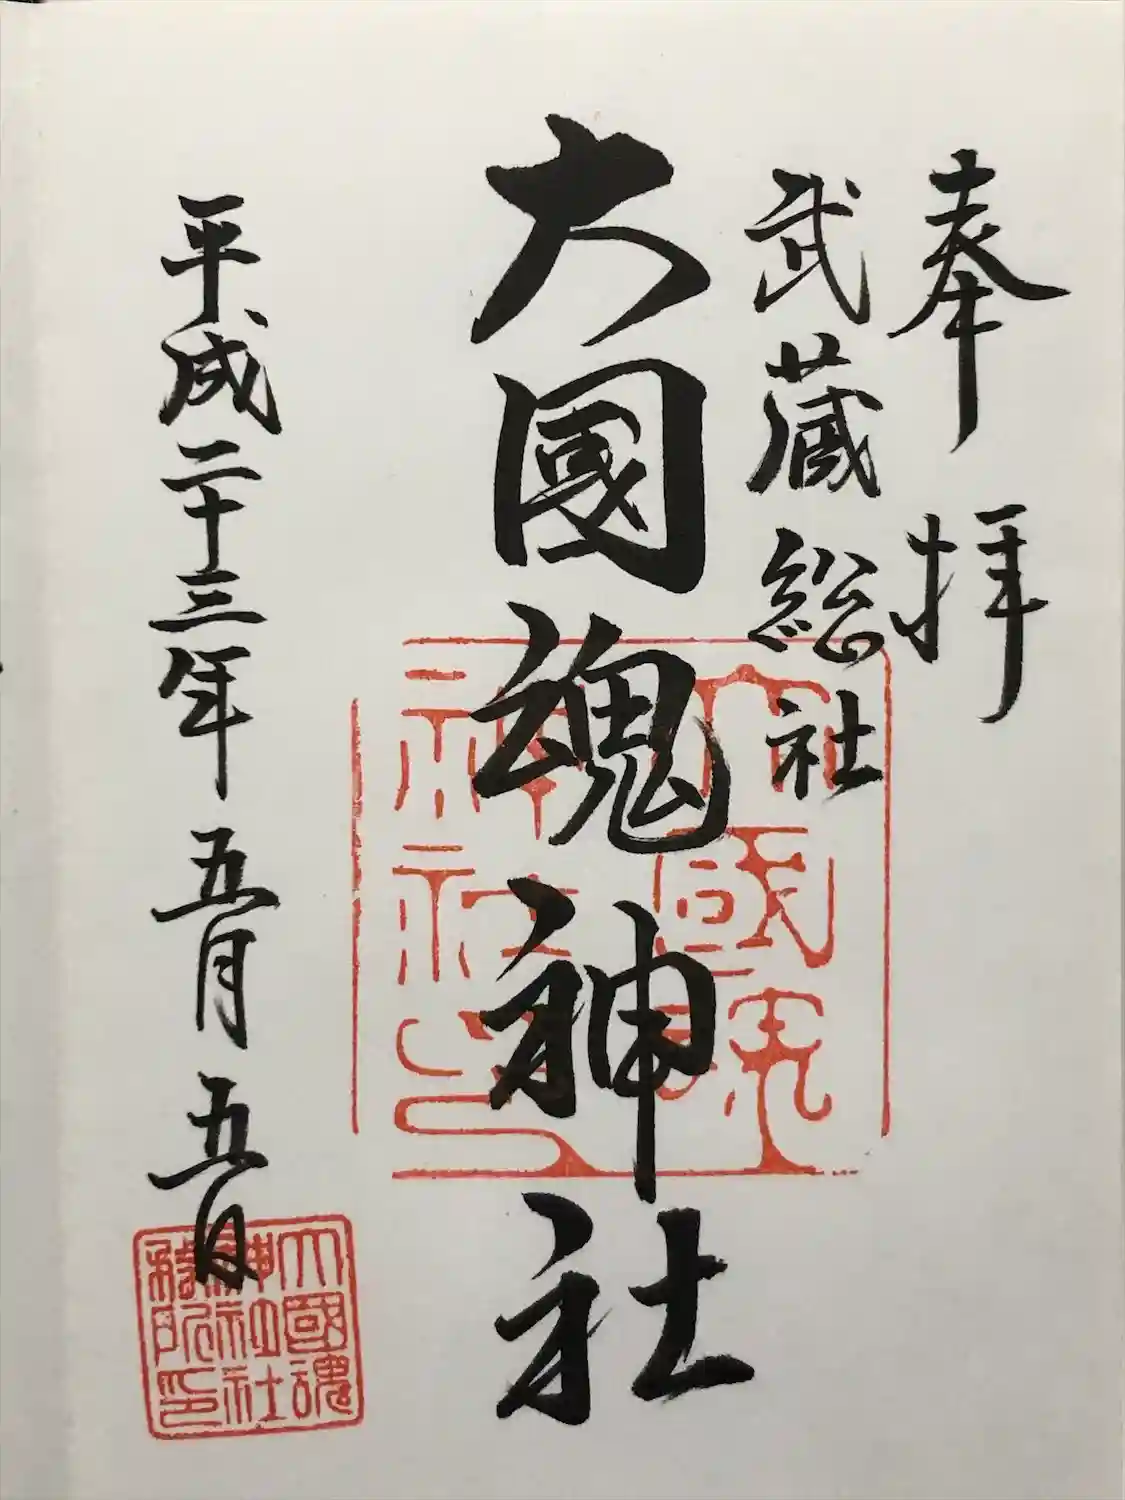 奉拝
武蔵総社
大國魂神社
平成二十三年五月五日
大國魂
神社印
大國魂
神社社
務所印